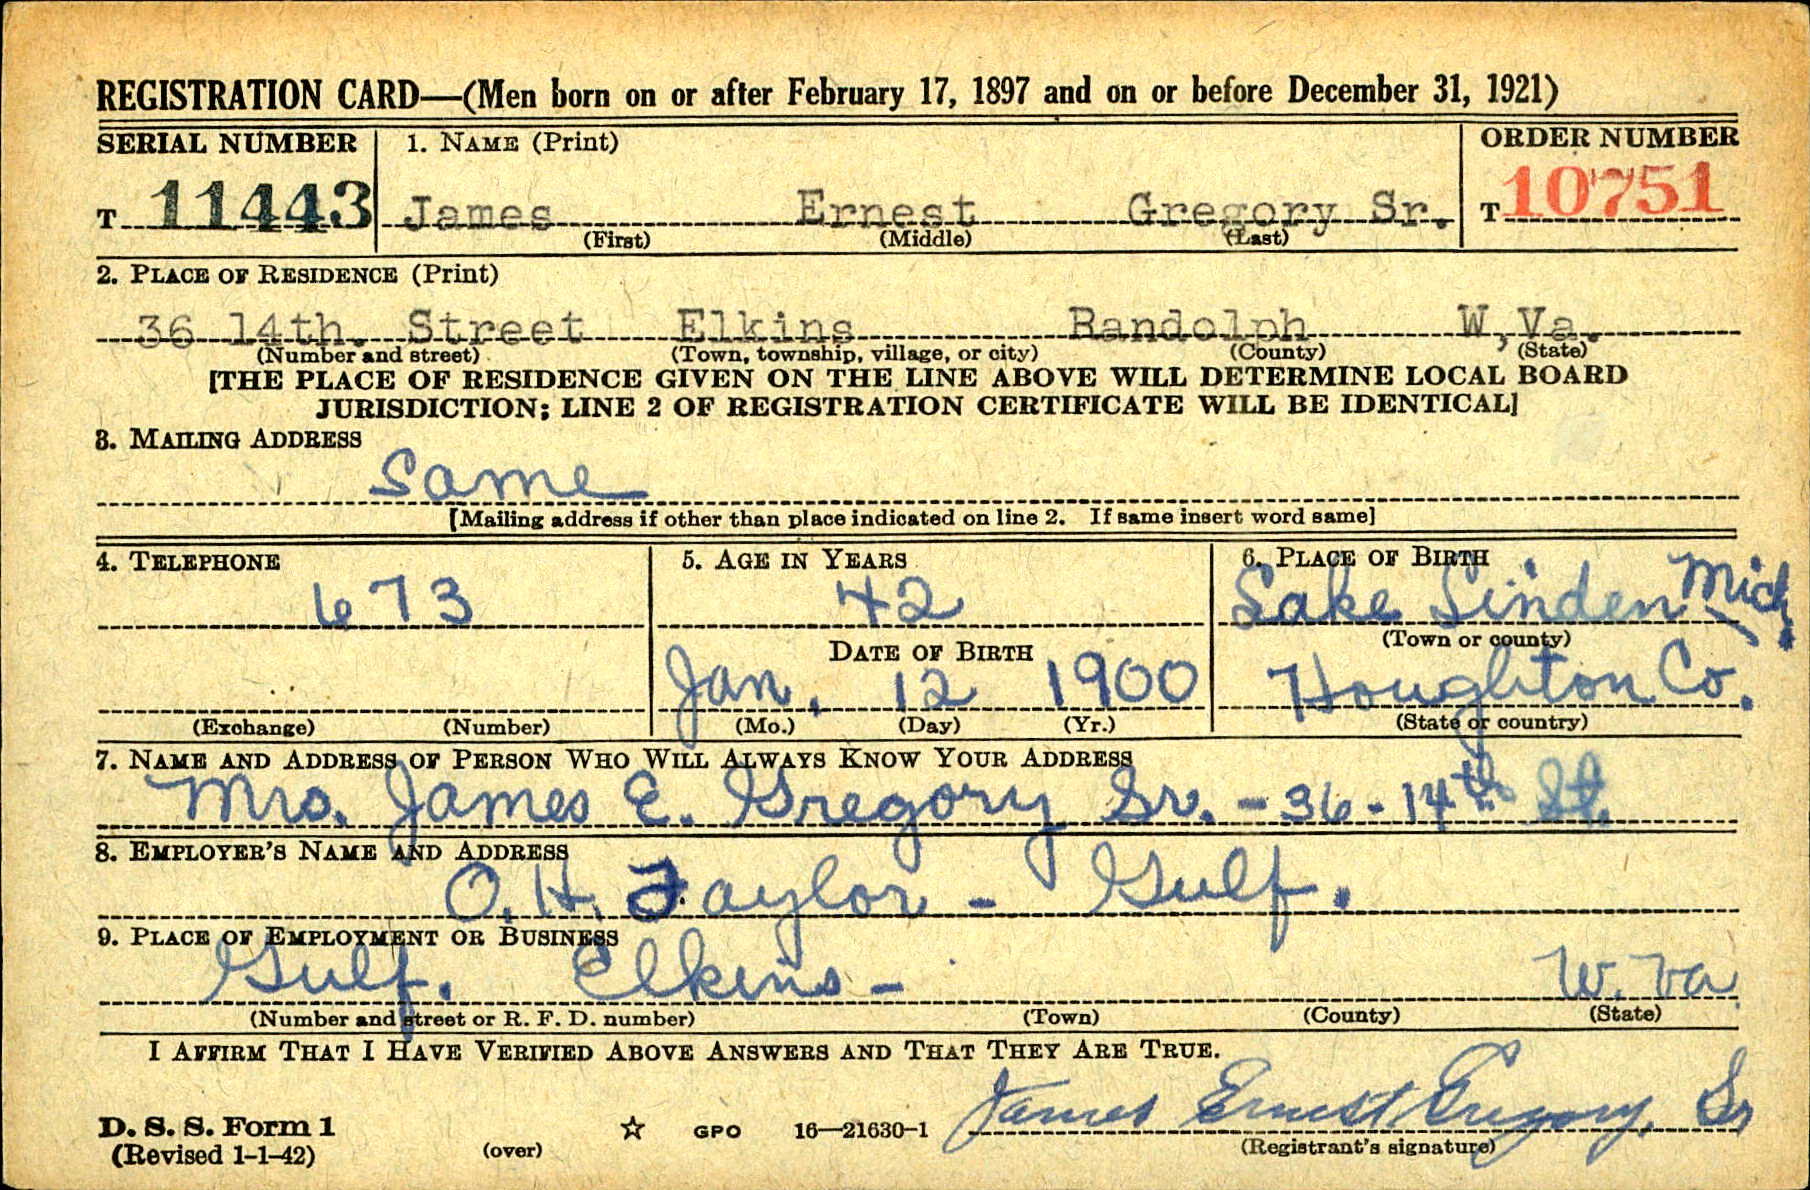 REGISTRATION CARD—(Men born on or after February 17, 1897 and on or before December 31, 1921)
SERIAL NUMBER 1. NAME (Print) ORDER NUMBER
T 11443 James Ernest Gregory Sr. T 10751
(First) (Middle) (Last)
2. PLACE OF RESIDENCE (Print)
36 14th. Street Elkins Randolph W,Va.
(Number and street) (Town, township, village, or city) (County) (State)
[THE PLACE OF RESIDENCE GIVEN ON THE LINE ABOVE WILL DETERMINE LOCAL BOARD
JURISDICTION; LINE 2 OF REGISTRATION CERTIFICATE WILL BE IDENTICAL]
3. MAILING ADDRESS
Same
[Mailing address if other than place indicated on line 2. If same insert word same]
4. TELEPHONE 5. AGE IN YEARS 6. PLACE OF BIRTH
673 42 Lake Linden Mich.
DATE OF BIRTH (Town or county)
Jan. 12 1900 Houghton Co.
(Exchange) (Number) (Mo.) (Day) (Yr.) (State or country)
7. NAME AND ADDRESS OF PERSON WHO WILL ALWAYS KNOW YOUR ADDRESS
Mrs. James E. Gregory Sr. - 36 - 14th St.
8. EMPLOYER'S NAME AND ADDRESS
O. H. Taylor - Gulf.
9. PLACE OF EMPLOYMENT OR BUSINESS
Gulf. Elkins - W. Va
(Number and street or R. F. D. number) (Town) (County) (State)
I AFFIRM THAT I HAVE VERIFIED ABOVE ANSWERS AND THAT THEY ARE TRUE.
James Ernest Gregory, Sr
D. S. S. Form 1
(Revised 1-1-42) (over) ☆ GPO 16—21630-1 (Registrant's signature)